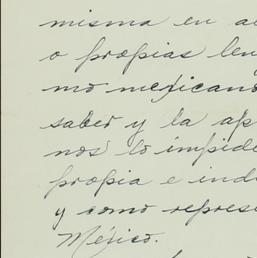 misma en a
o propias len
mo mexicano
saber y la ap
nos lo impide
propia e ind
y como represe
México.